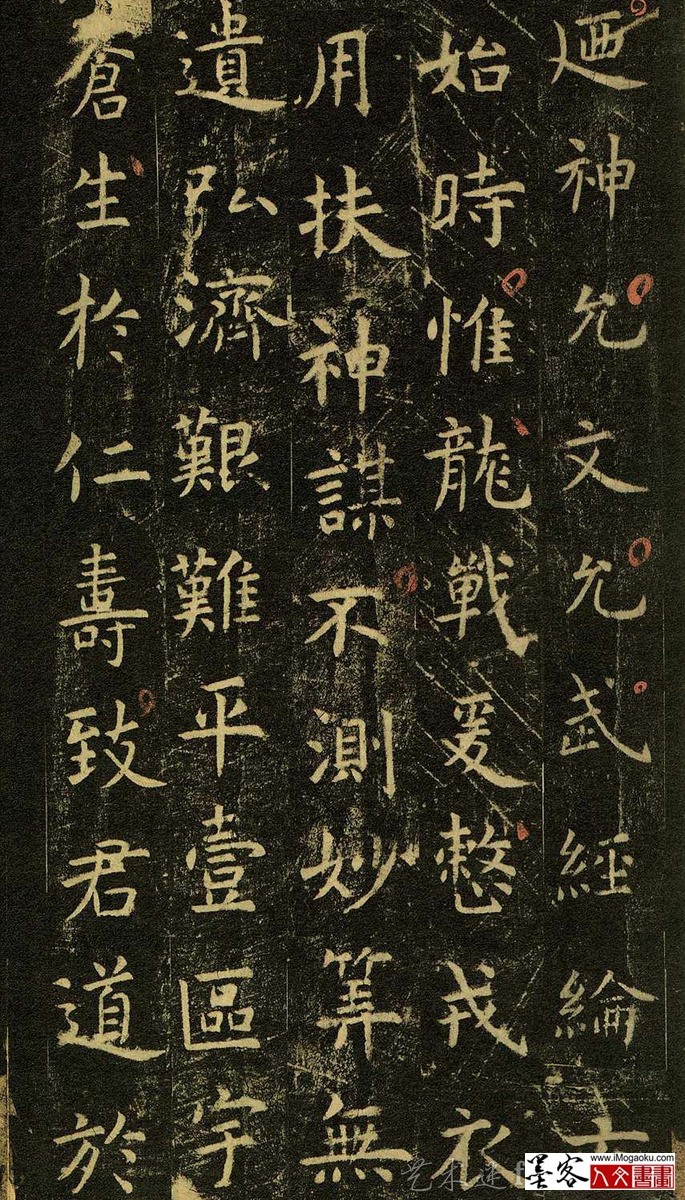 廼神允文允武經綸
始時惟龍戰爰整戎衣
用扶神謀不測妙筭無
遺弘濟艱難平壹區宇
蒼生於仁壽致君道於
墨客
www.iMogaoku.com
人文書畫